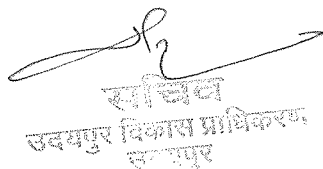 सचिव
उदयपुर विकास प्राधिकरण
उदयपुर